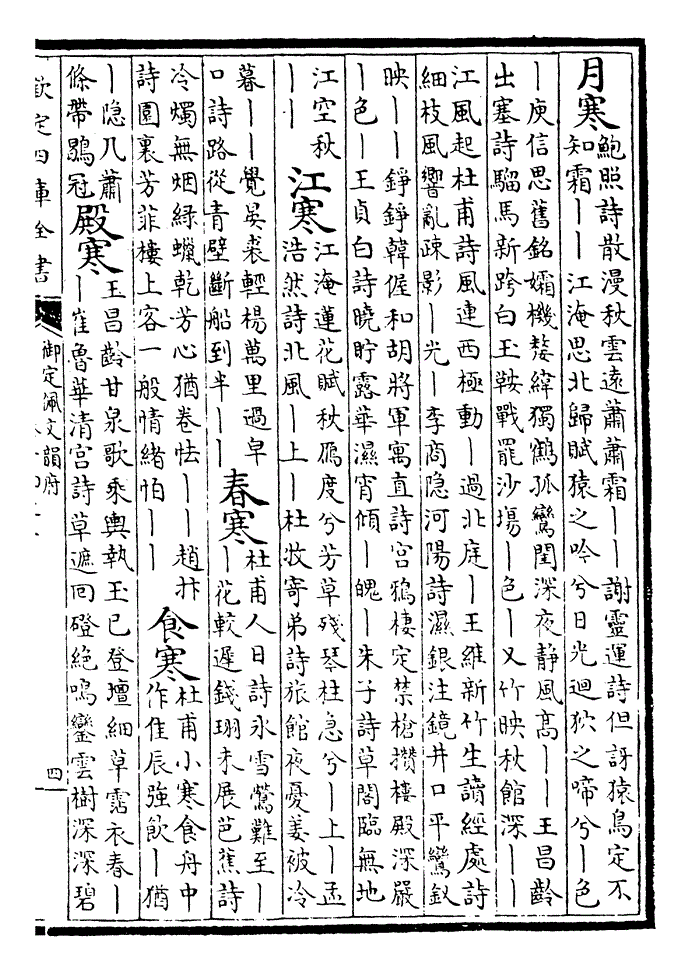 月寒
鮑照詩散漫秋雲遠蕭蕭霜丨丨謝靈運詩但訝猿鳥定不
知霜丨丨江淹思北歸賦猿之吟兮日光迴狖之啼兮丨色
丨庾信思舊銘孀機嫠緯獨鶴孤鸞閨深夜靜風高丨丨王昌齡
出塞詩騮馬新跨白玉鞍戰罷沙塲丨色丨又竹映秋館深丨丨
江風起杜甫詩風連西極動丨過北庭丨王維新竹生讀經處詩
細枝風響亂疎影丨光丨李商隐河陽詩濕銀注鏡井口平鸞釵
映丨丨錚錚韓偓和胡將軍寓直詩宮鴉棲定禁槍攢樓殿深嚴
丨色丨王貞白詩曉貯露華濕宵傾丨魄丨朱子詩草閣臨無地
江空秋
丨丨
江寒
江淹蓮花賦秋鴈度兮芳草殘琴柱急兮丨上丨孟
浩然詩北風丨上丨杜牧寄弟詩旅館夜憂姜被冷
暮丨丨覺晏裘輕楊萬里過皁
口詩路從青壁斷船到半丨丨
春寒
杜甫人日詩氷雪鶯難至丨
丨花較遲錢珝未展芭蕉詩
冷燭無烟緑蠟乾芳心猶卷怯丨丨趙抃
詩園裏芳菲樓上客一般情緒怕丨丨
食寒
杜甫小寒食舟中
作佳辰強飲丨猶
丨隐几蕭
條帶鶡冠
殿寒
王昌齡甘泉歌乘輿執玉已登壇細草霑衣春丨
丨崔魯華清宫詩草遮回磴絶鳴鑾雲樹深深碧
欽定四庫全書
御定佩文韻府
四